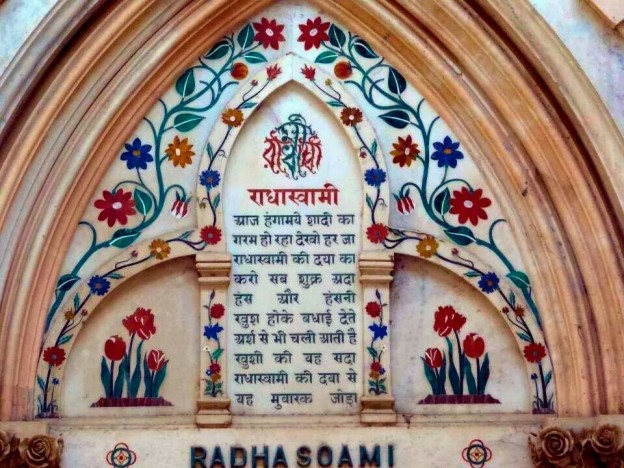 राधास्वामी
राधास्वामी
आज हंगामये शादी का
गरम हो रहा देखो हर जा
राधास्वामी की दया का
करो सब शुक्र अदा
हंस और हंसनी
खुश होके बधाई देते
अर्श से भी चली आती है
खुशी की यह सदा
राधास्वामी की दया से
यह मुबारक जोड़ा
RADHASOAMI